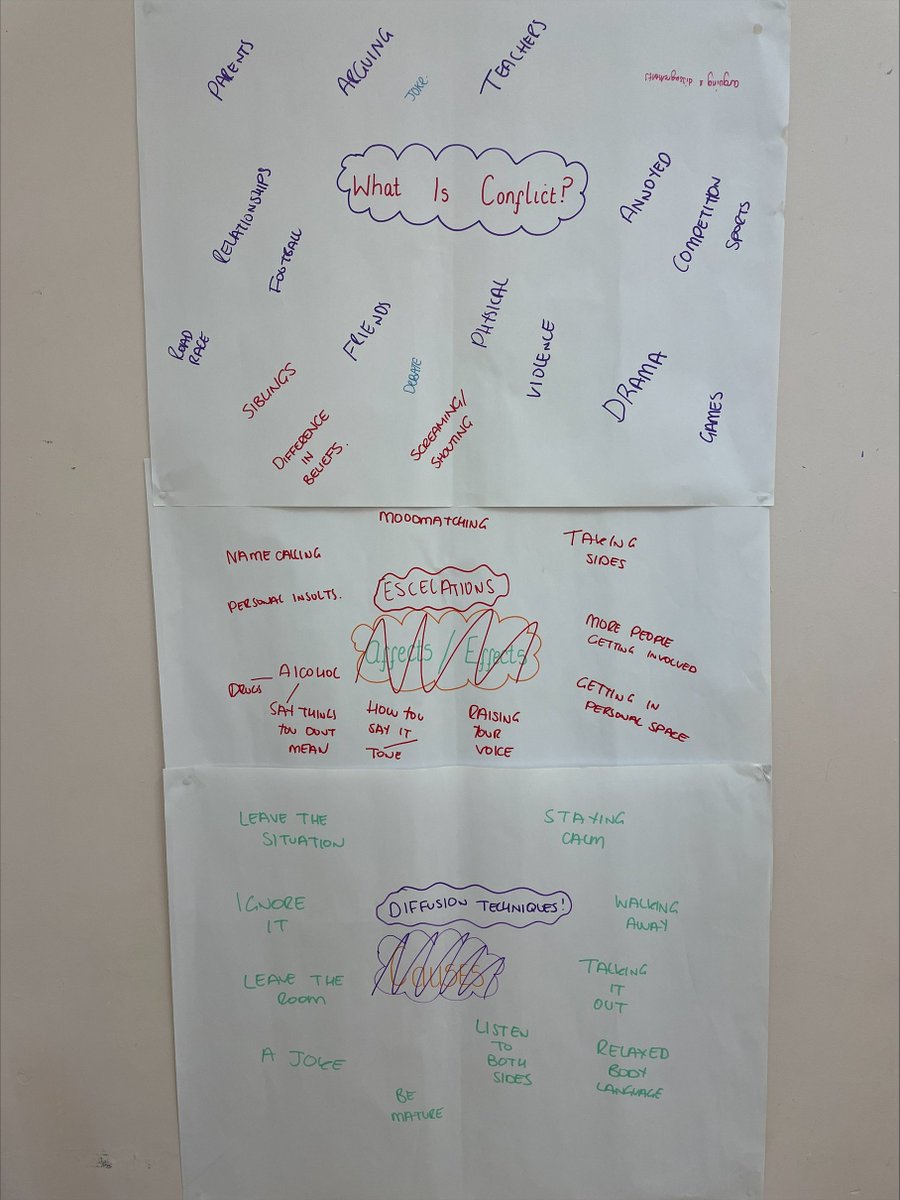 PARENTS
ARGUING
JOKE
TEACHERS
arguing & dissagreements
What Is Conflict?
RELATIONSHIPS
FOOTBALL
ANNOYED
COMPETITION
SPORTS
ROAD
RAGE
FRIENDS
PHYSICAL
VIOLENCE
SIBLINGS
DEBATE
DRAMA
GAMES
DIFFERENCE
IN
BELIEFS.
SCREAMING/
SHOUTING
MOODMATCHING
NAME CALLING
TAKING
SIDES
ESCELATIONS
PERSONAL INSULTS.
Affects / Effects
MORE PEOPLE
GETTING INVOLVED
DRUGS
ALCOHOL
SAY THINGS
YOU DONT
MEAN
HOW YOU
SAY IT
TONE
RAISING
YOUR
VOICE
GETTING IN
PERSONAL SPACE
LEAVE THE
SITUATION
STAYING
CALM
IGNORE
IT
DIFFUSION TECHNIQUES!
WALKING
AWAY
CAUSES
LEAVE THE
ROOM
TALKING
IT
OUT
A JOKE
LISTEN
TO
BOTH
SIDES
RELAXED
BODY
LANGUAGE
BE
MATURE